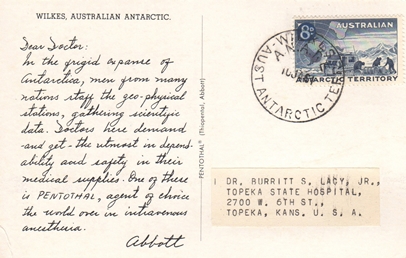 WILKES, AUSTRALIAN ANTARCTIC.
Dear Doctor:
In the frigid expanse of
Antarctica, men from many
nations staff the geo-physical
stations, gathering scientific
data. Doctors here demand
-and get- the utmost in depend-
ability and safety in their
medical supplies. One of these
is PENTOTHAL, agent of choice
the world over in intravenous
anesthesia.
Abbott
PENTOTHAL® (Thiopental, Abbott)
8D
AUSTRALIAN
ANTARCTIC TERRITORY
AUST ANTARCTIC TER
DR. BURRITT S. LACY, JR.,
TOPEKA STATE HOSPITAL,
2700 W. 6TH ST.,
TOPEKA, KANS. U. S. A.